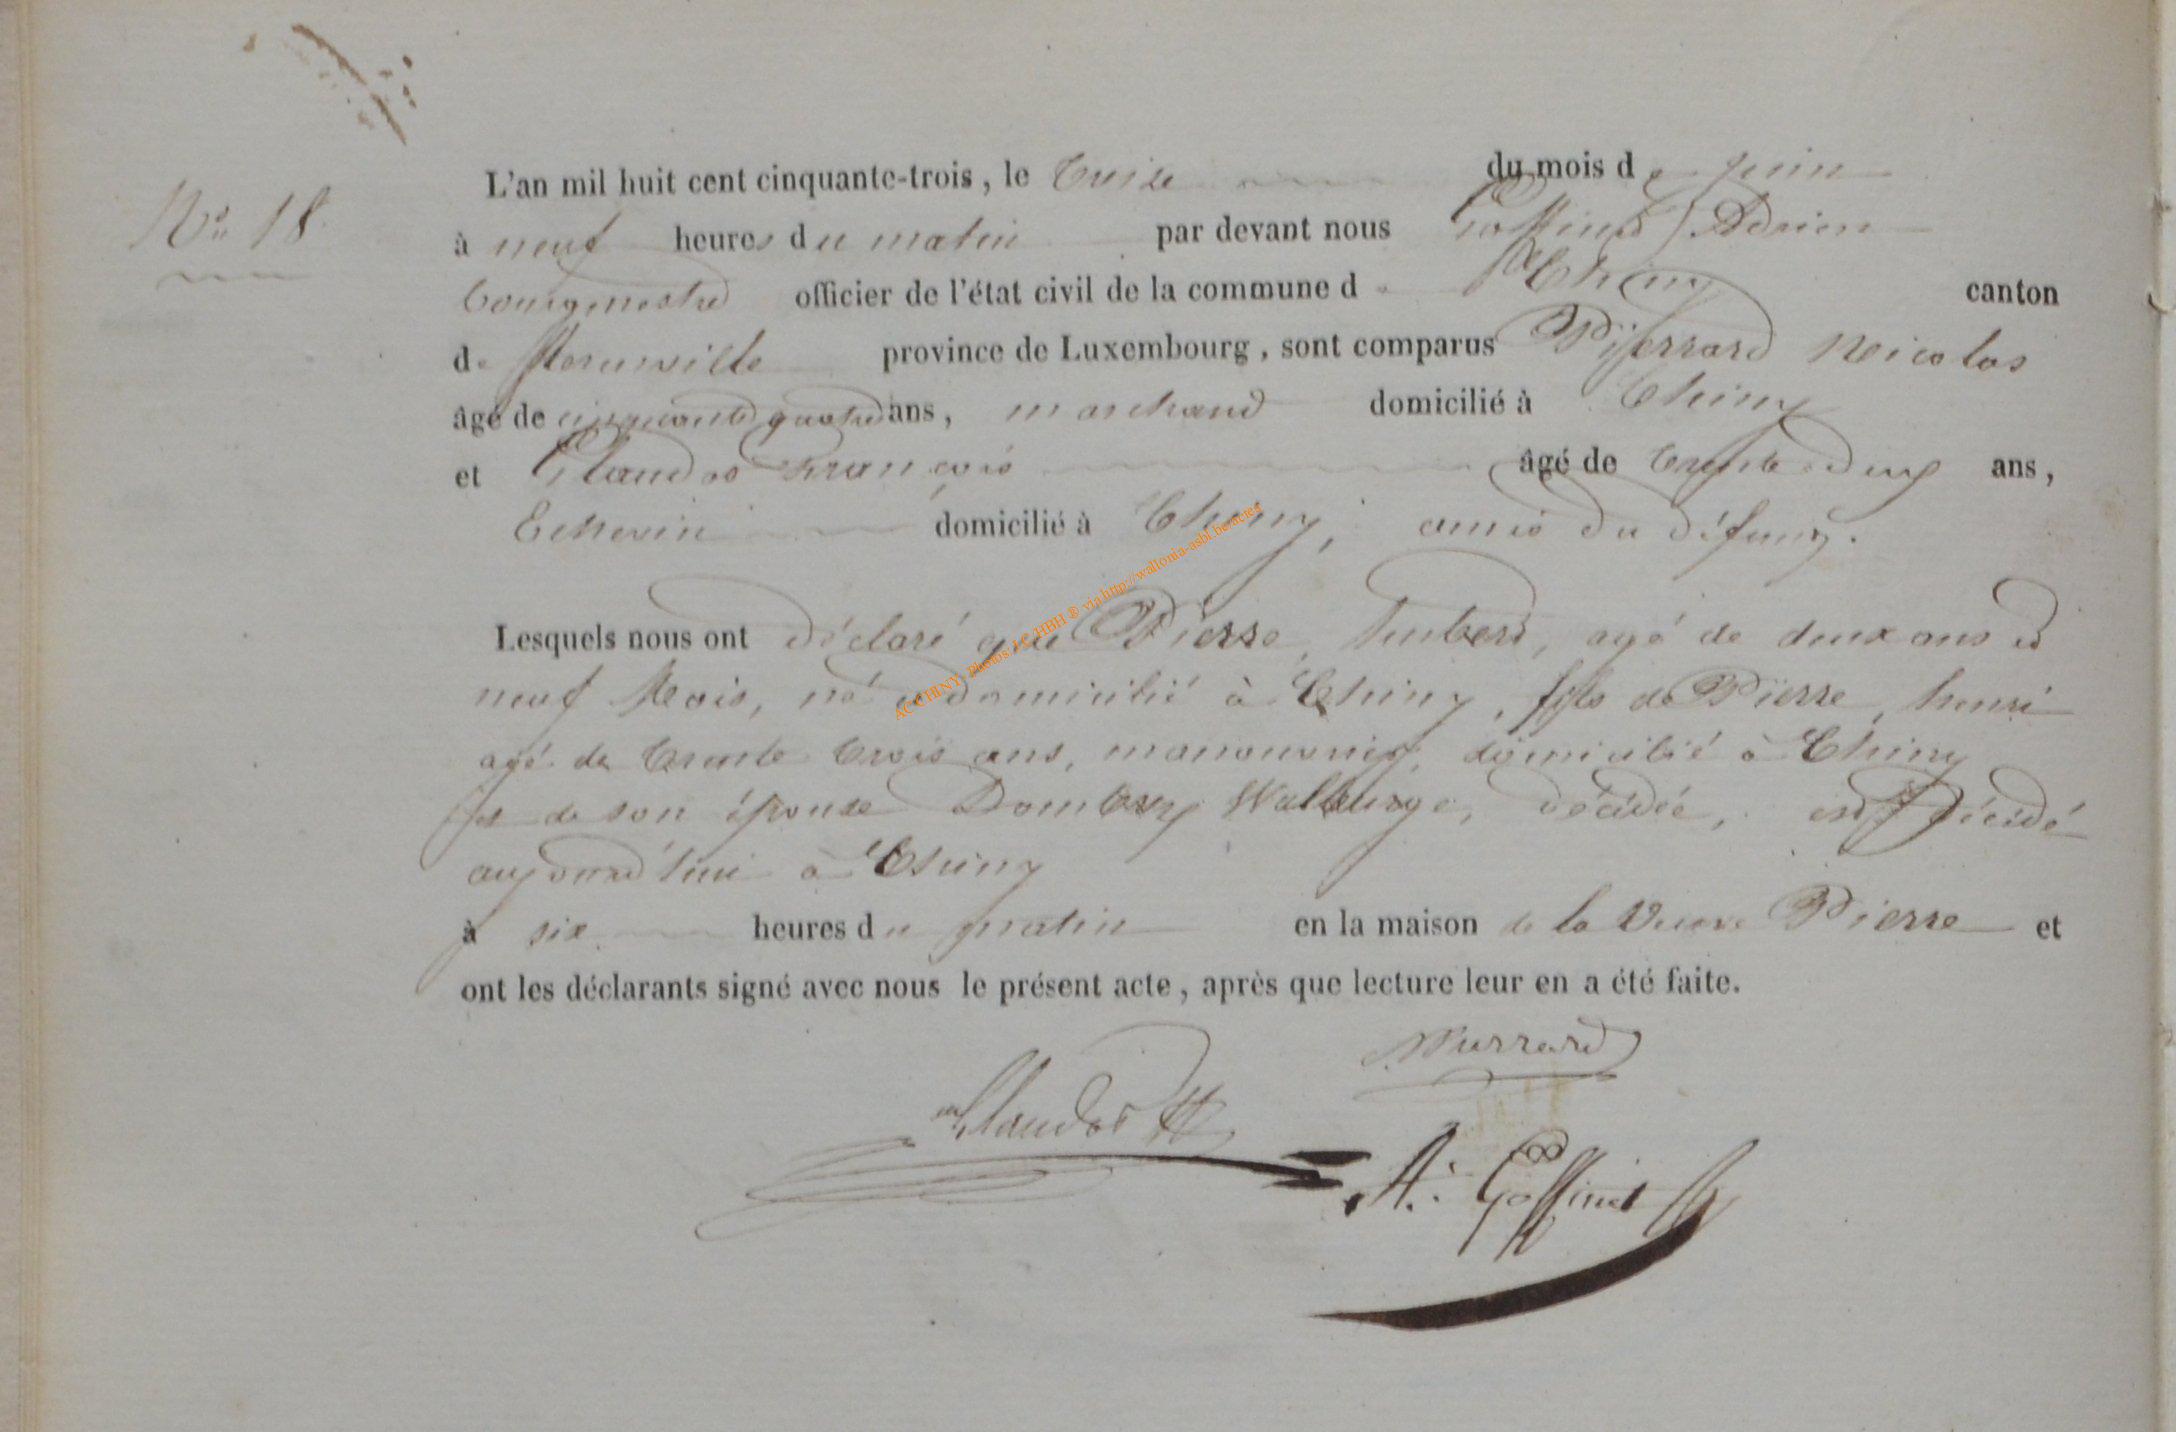 N° 18
L'an mil huit cent cinquante-trois, le treize du mois de juin
à neuf heures du matin par devant nous Goffinet Adrien
bourgmestre officier de l'état civil de la commune de Chiny canton
de province de Luxembourg, sont comparus Pierrard Nicolas
âgé de cinquante quatre ans, marchand domicilié à Chiny
et Claudot François âgé de trente deux ans,
Echevin domicilié à Chiny, amis du défunt.
Lesquels nous ont déclaré que Pierre, hubert, agé de deux ans et
neuf Mois, né et domicilié à Chiny, fils de Pierre, henri
agé de trente trois ans, manouvrier, domicilié à Chiny
et de son épouse Walburge, décédée, est décédé
aujourd'hui à Chiny
à six heures du matin en la maison de la Veuve Pierre et
ont les déclarants signé avec nous le présent acte, après que lecture leur en a été faite.
Pierrard
Claudot
A. Goffinet
AC CHINY, Photos J.C. HBH ® via http://wallonia-asbl.be/actes